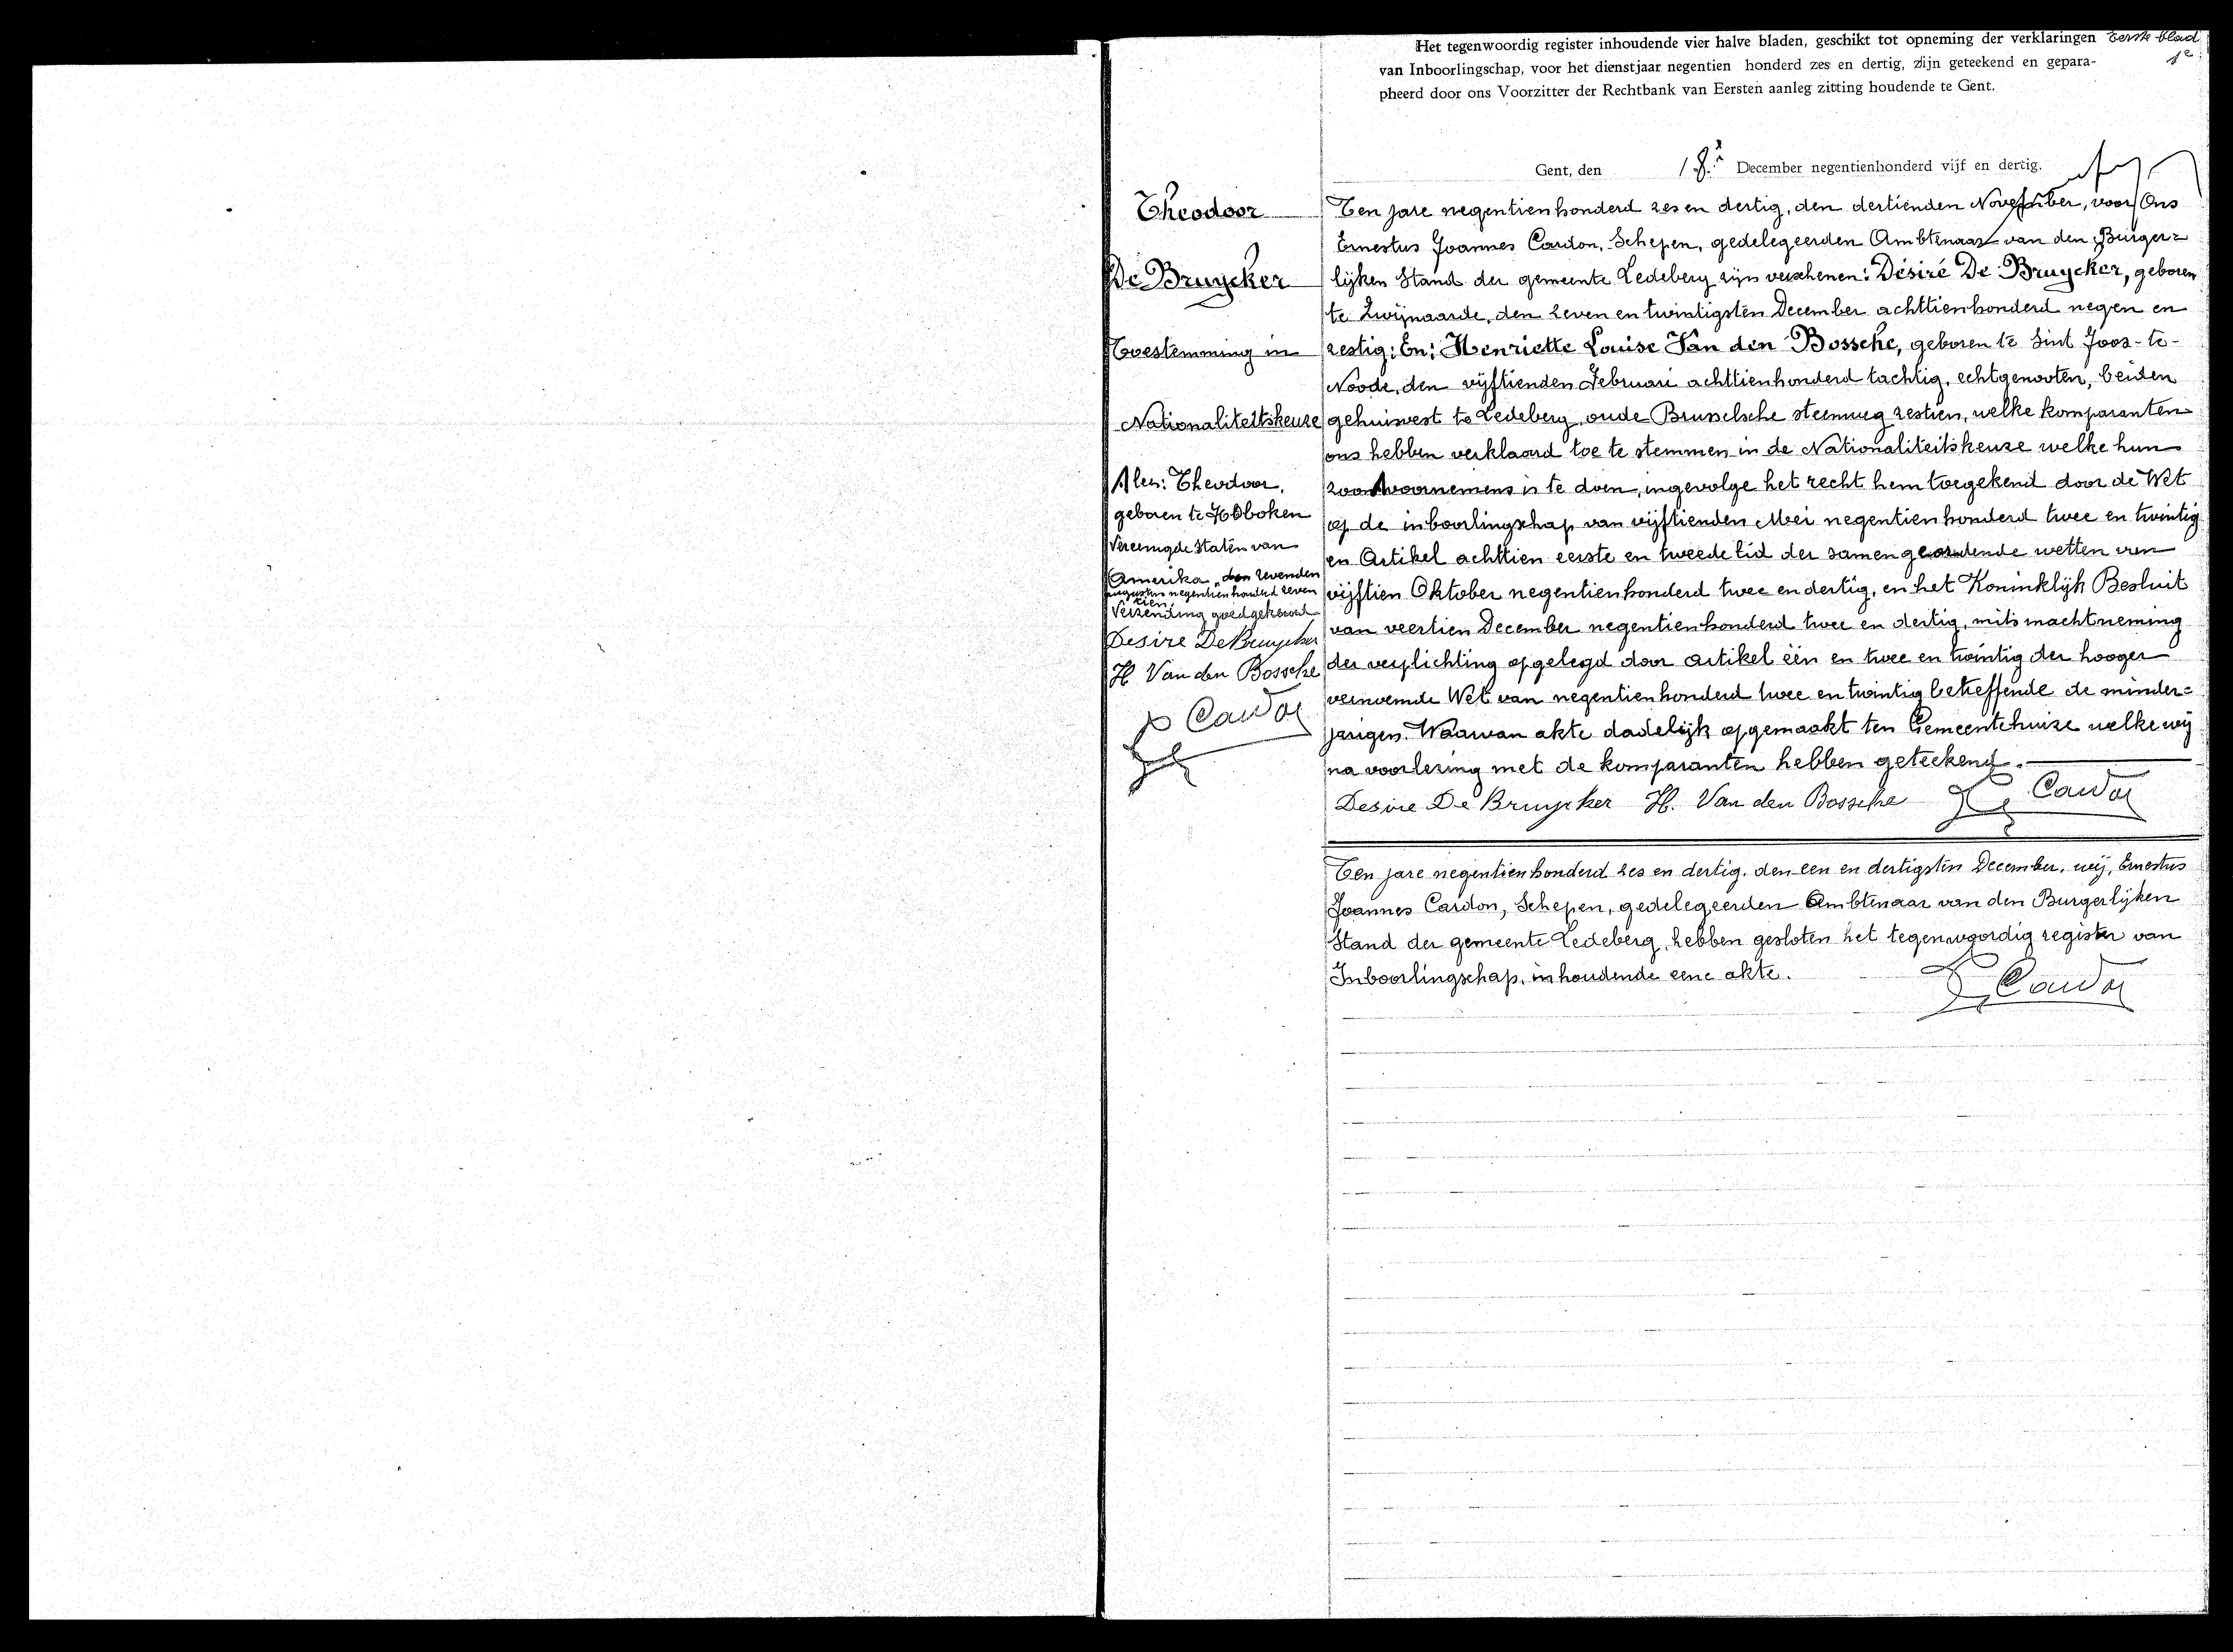 Het tegenwoordig register inhoudende vier halve bladen, geschikt tot opneming der verklaringen
van Inboorlingschap, voor het dienstjaar negentien honderd zes en dertig, zijn geteekend en gepara-
pheerd door ons Voorzitter der Rechtbank van Eersten aanleg zitting houdende te Gent.
Eerste blad
1e
Gent, den 18e December negentienhonderd vijf en dertig.
Theodoor
De Bruycker
Toestemming in
Nationaliteitskeuze
Alez: Theodoor,
geboren te Hoboken
Vereenigde Staten van
Amerika, den zevenden
augustus negentienhonderd zeven
tien,
Verzending goedgekeurd
Desire De Bruycker
H Van den Bossche
Cardon
Ten jare negentienhonderd zes en dertig, den dertienden November, voor Ons
Ernestus Joannes Cardon, Schepen, gedelegeerden Ambtenaar van den Burger=
lijken Stand der gemeente Ledeberg zijn verschenen: Désiré De Bruycker, geboren
te Zwijnaarde, den zeven en twintigsten December achttienhonderd negen en
zestig; En; Henriette Louise Van den Bossche, geboren te Sint Joos-te-
Noode, den vijftienden Februari achttienhonderd tachtig, echtgenooten, beiden
gehuisvest te Ledeberg, oude Brusselsche steenweg zestien, welke komparanten
ons hebben verklaard toe te stemmen in de Nationaliteitskeuze welke hun
zoon voornemens is te doen, ingevolge het recht hem toegekend door de Wet
op de inboorlingschap van vijftienden Mei negentienhonderd twee en twintig
en Artikel achttien eerste en tweede lid der samengeordende wetten van
vijftien Oktober negentienhonderd twee en dertig, en het Koninklijk Besluit
van veertien December negentienhonderd twee en dertig, mits machtneming
der verplichting opgelegd door artikel één en twee en twintig der hooger
vernoemde Wet van negentienhonderd twee en twintig betreffende de minder=
jarigen. Waarvan akte dadelijk opgemaakt ten Gemeentehuize welke wij
na voorlezing met de komparanten hebben geteekend.
Desire De Bruycker H. Van den Bossche Cardon
Ten jare negentienhonderd zes en dertig, den een en dertigsten December, wij, Ernestus
Joannes Cardon, Schepen, gedelegeerden Ambtenaar van den Burgerlijken
Stand der gemeente Ledeberg, hebben gesloten het tegenwoordig register van
Inboorlingschap, inhoudende eene akte.
Cardon